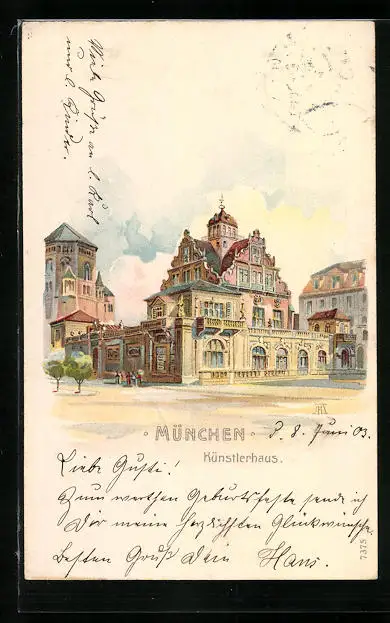 Viele Grüße an l. Karl
und l. Kinder.
· MÜNCHEN ·
Künstlerhaus.
d. 8. Juni 03.
Liebe Gusti!
Zum werthen Geburtsfeste sende ich
Dir meine herzlichsten Glückwünsche.
Besten Gruß Dein Hans.
7375